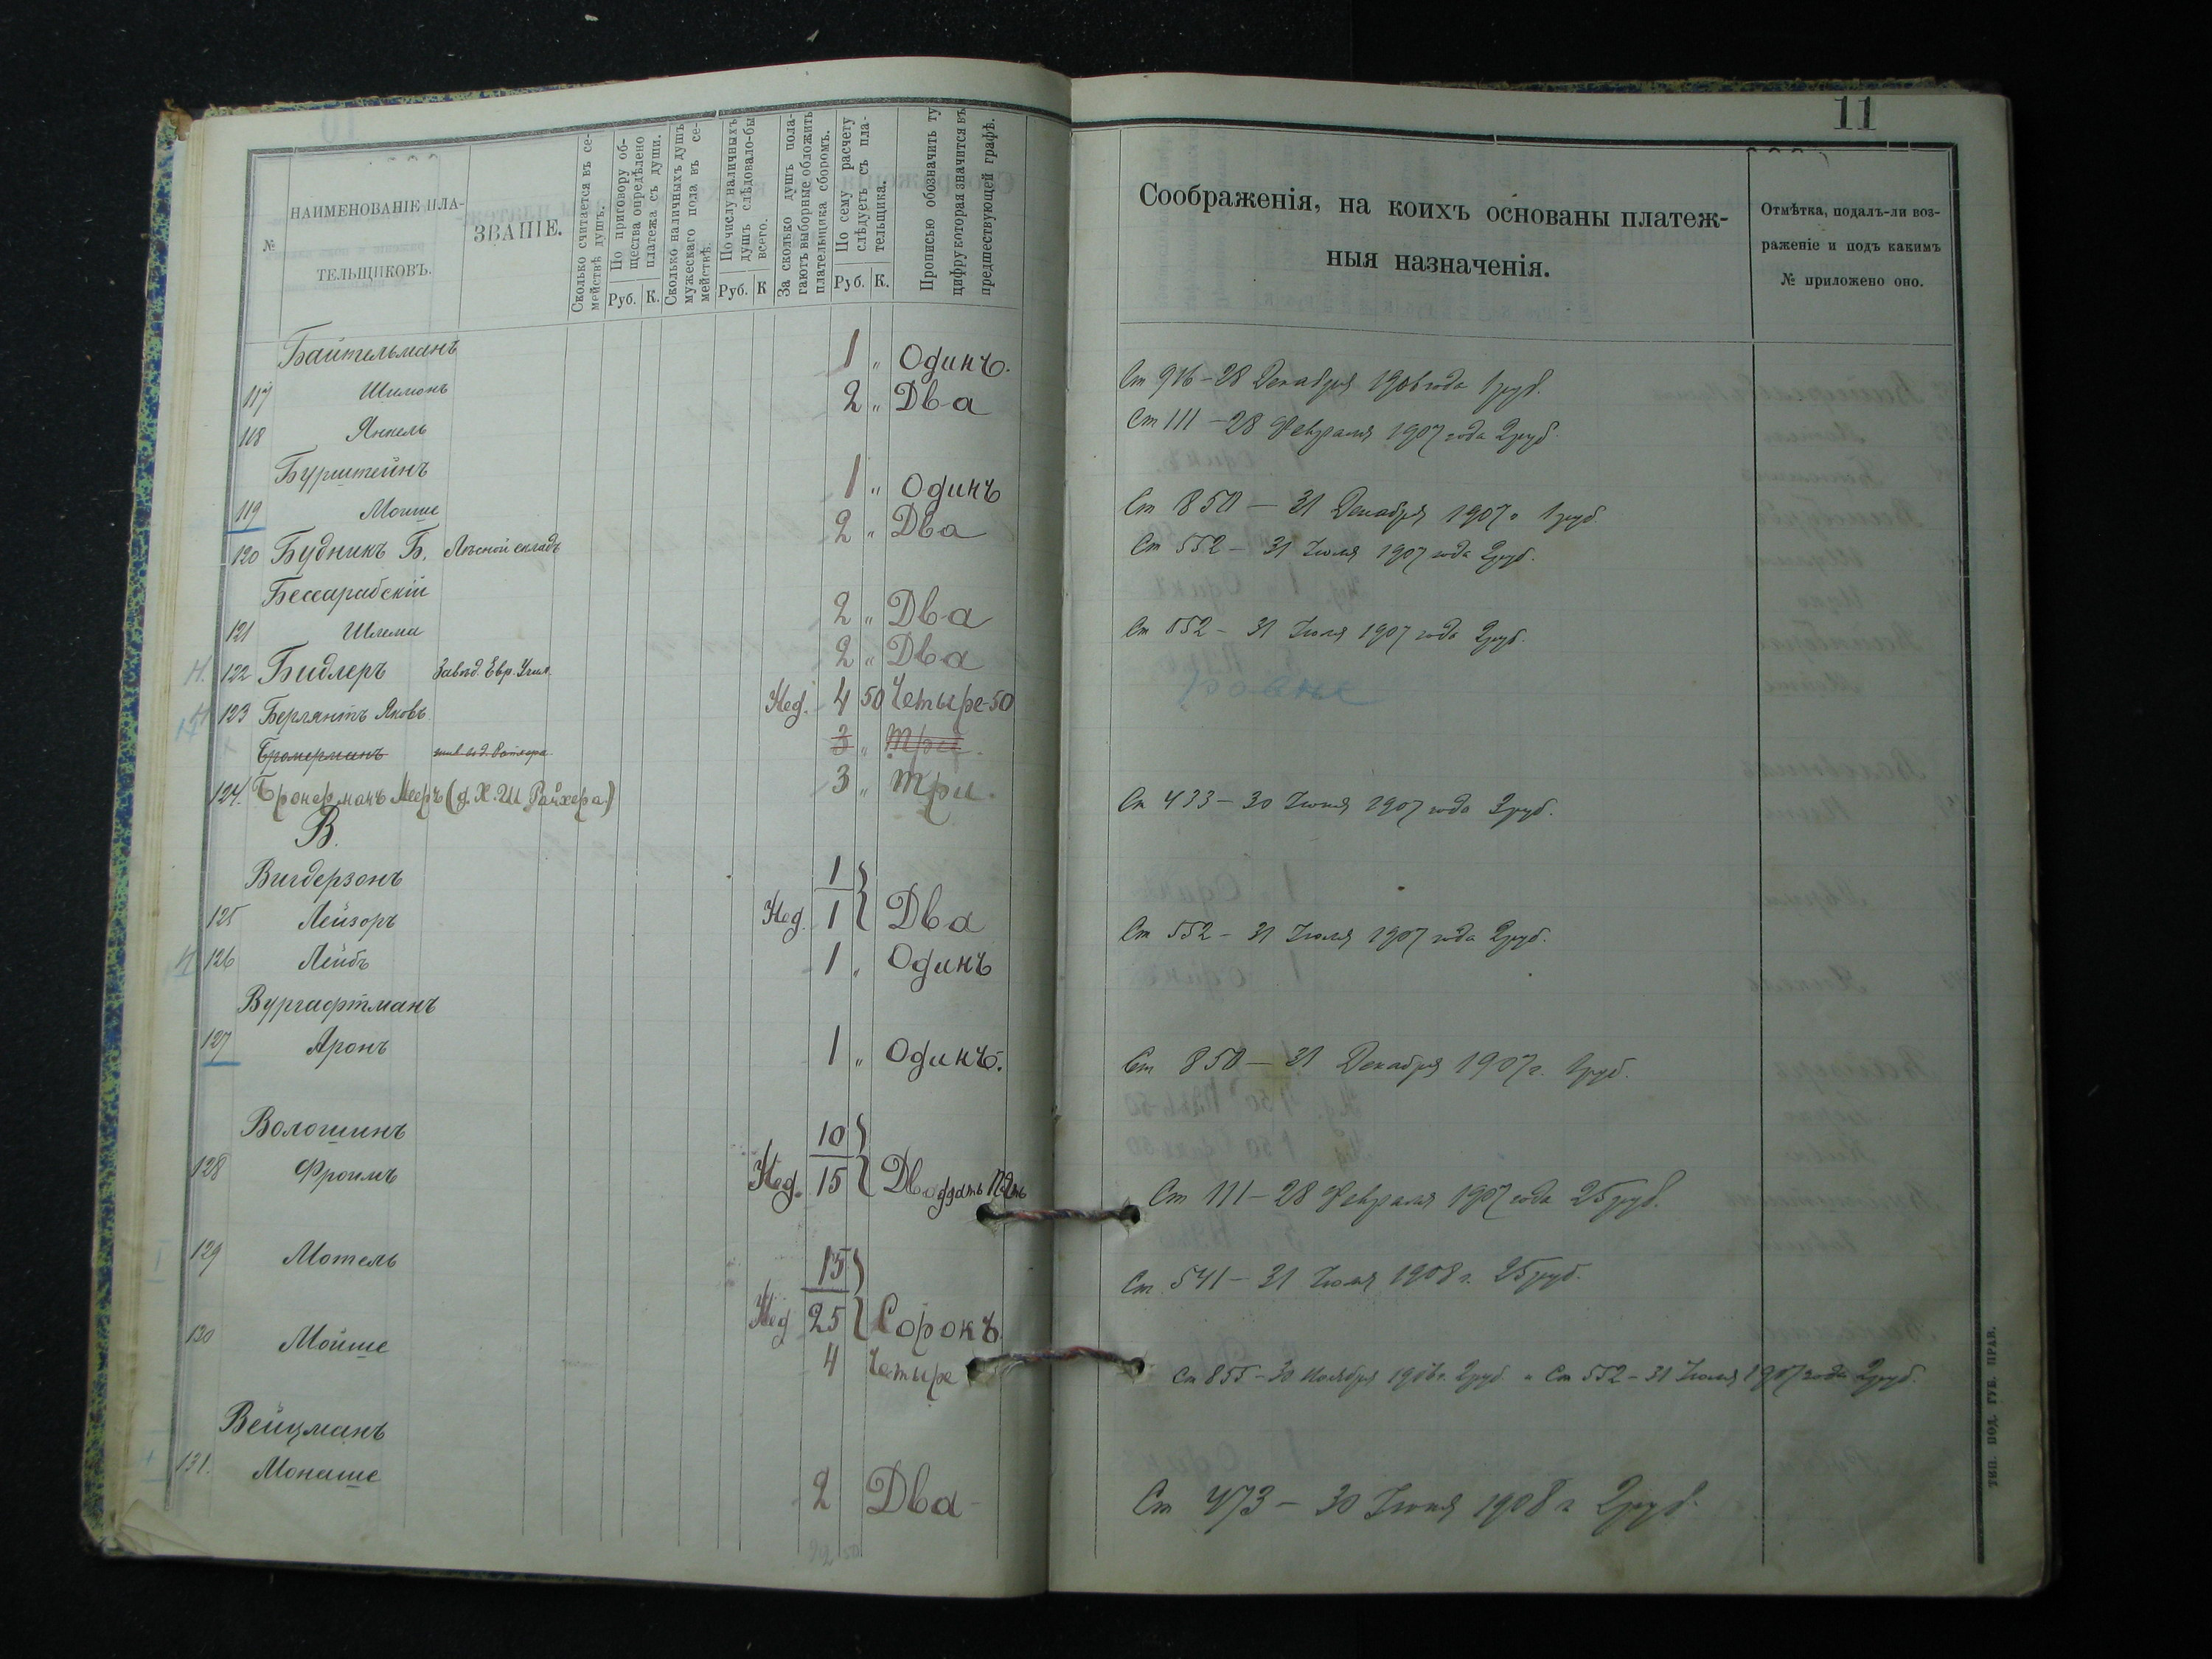 11
№
НАИМЕНОВАНІЕ ПЛА-
ТЕЛЬЩИКОВЪ.
ЗВАНІЕ.
Сколько считается въ се-
мействѣ душъ.
По приговору об-
щества опредѣлено
платежа съ души.
Руб. К.
Сколько наличныхъ душъ
мужескаго пола въ се-
мействѣ.
По числу наличныхъ
душъ слѣдовало-бы
всего.
Руб. К
За сколько душъ пола-
гаютъ выборные обложить
плательщика сборомъ.
По сему расчету
слѣдуетъ съ пла-
тельщика.
Руб. К.
Прописью обозначить ту
цифру которая значится въ
предшествующей графѣ.
Соображенія, на коихъ основаны платеж-
ныя назначенія.
Отмѣтка, подалъ-ли воз-
раженіе и подъ какимъ
№ приложено оно.
Байтельманъ
117 Шимонъ 1 " Одинъ. Ст 916 – 28 Декабря 1906 года 1 руб.
118 Янкель 2 " Два Ст 111 – 28 Февраля 1907 года 2 руб.
Бурштейнъ
119 Моише 1 " Одинъ Ст 850 – 31 Декабря 1907 г 1 руб
120 Будникъ Б. Лѣсной складъ 2 " Два Ст 552 – 31 Іюля 1907 года 2 руб.
Бессарабскій
121 Шлема 2 " Два Ст 552 – 31 Іюля 1907 года 2 руб.
122 Бидлеръ Завѣд. Евр. Учил. 2 " Два
123 Берлянтъ Яковъ Нед. 4 50 Четыре-50
3 " Три.
124. Бронерманъ Мееръ (д. Х. Ш Райхера) 3 " Три. Ст 433 – 30 Іюня 1907 года 3 руб.
В.
Вигдерзонъ
125 Лейзоръ 1 Нед. 1 Два Ст 552 – 31 Іюля 1907 года 2 руб.
126 Лейбъ 1 " Одинъ
Вургафтманъ
127 Аронъ 1 " Одинъ. Ст 850 – 31 Декабря 1907 г. 1 руб.
Вологинъ
128 Фроимъ 10 Нед. 15 Двадцать Пять Ст 111 – 28 Февраля 1907 года 25 руб.
129 Мотель 15 Нед 25 Сорокъ. Ст. 541 – 31 Іюля 1908 г. 25 руб.
130 Мойше 4 Четыре Ст 855 – 30 Ноября 1906 г. 2 руб и Ст 552 – 31 Іюля 1907 года 2 руб.
Вейцманъ
131. Монаше 2 Два Ст 473 – 30 Іюня 1908 г 2 руб.
ТИП. ПОД. ГУБ. ПРАВ.